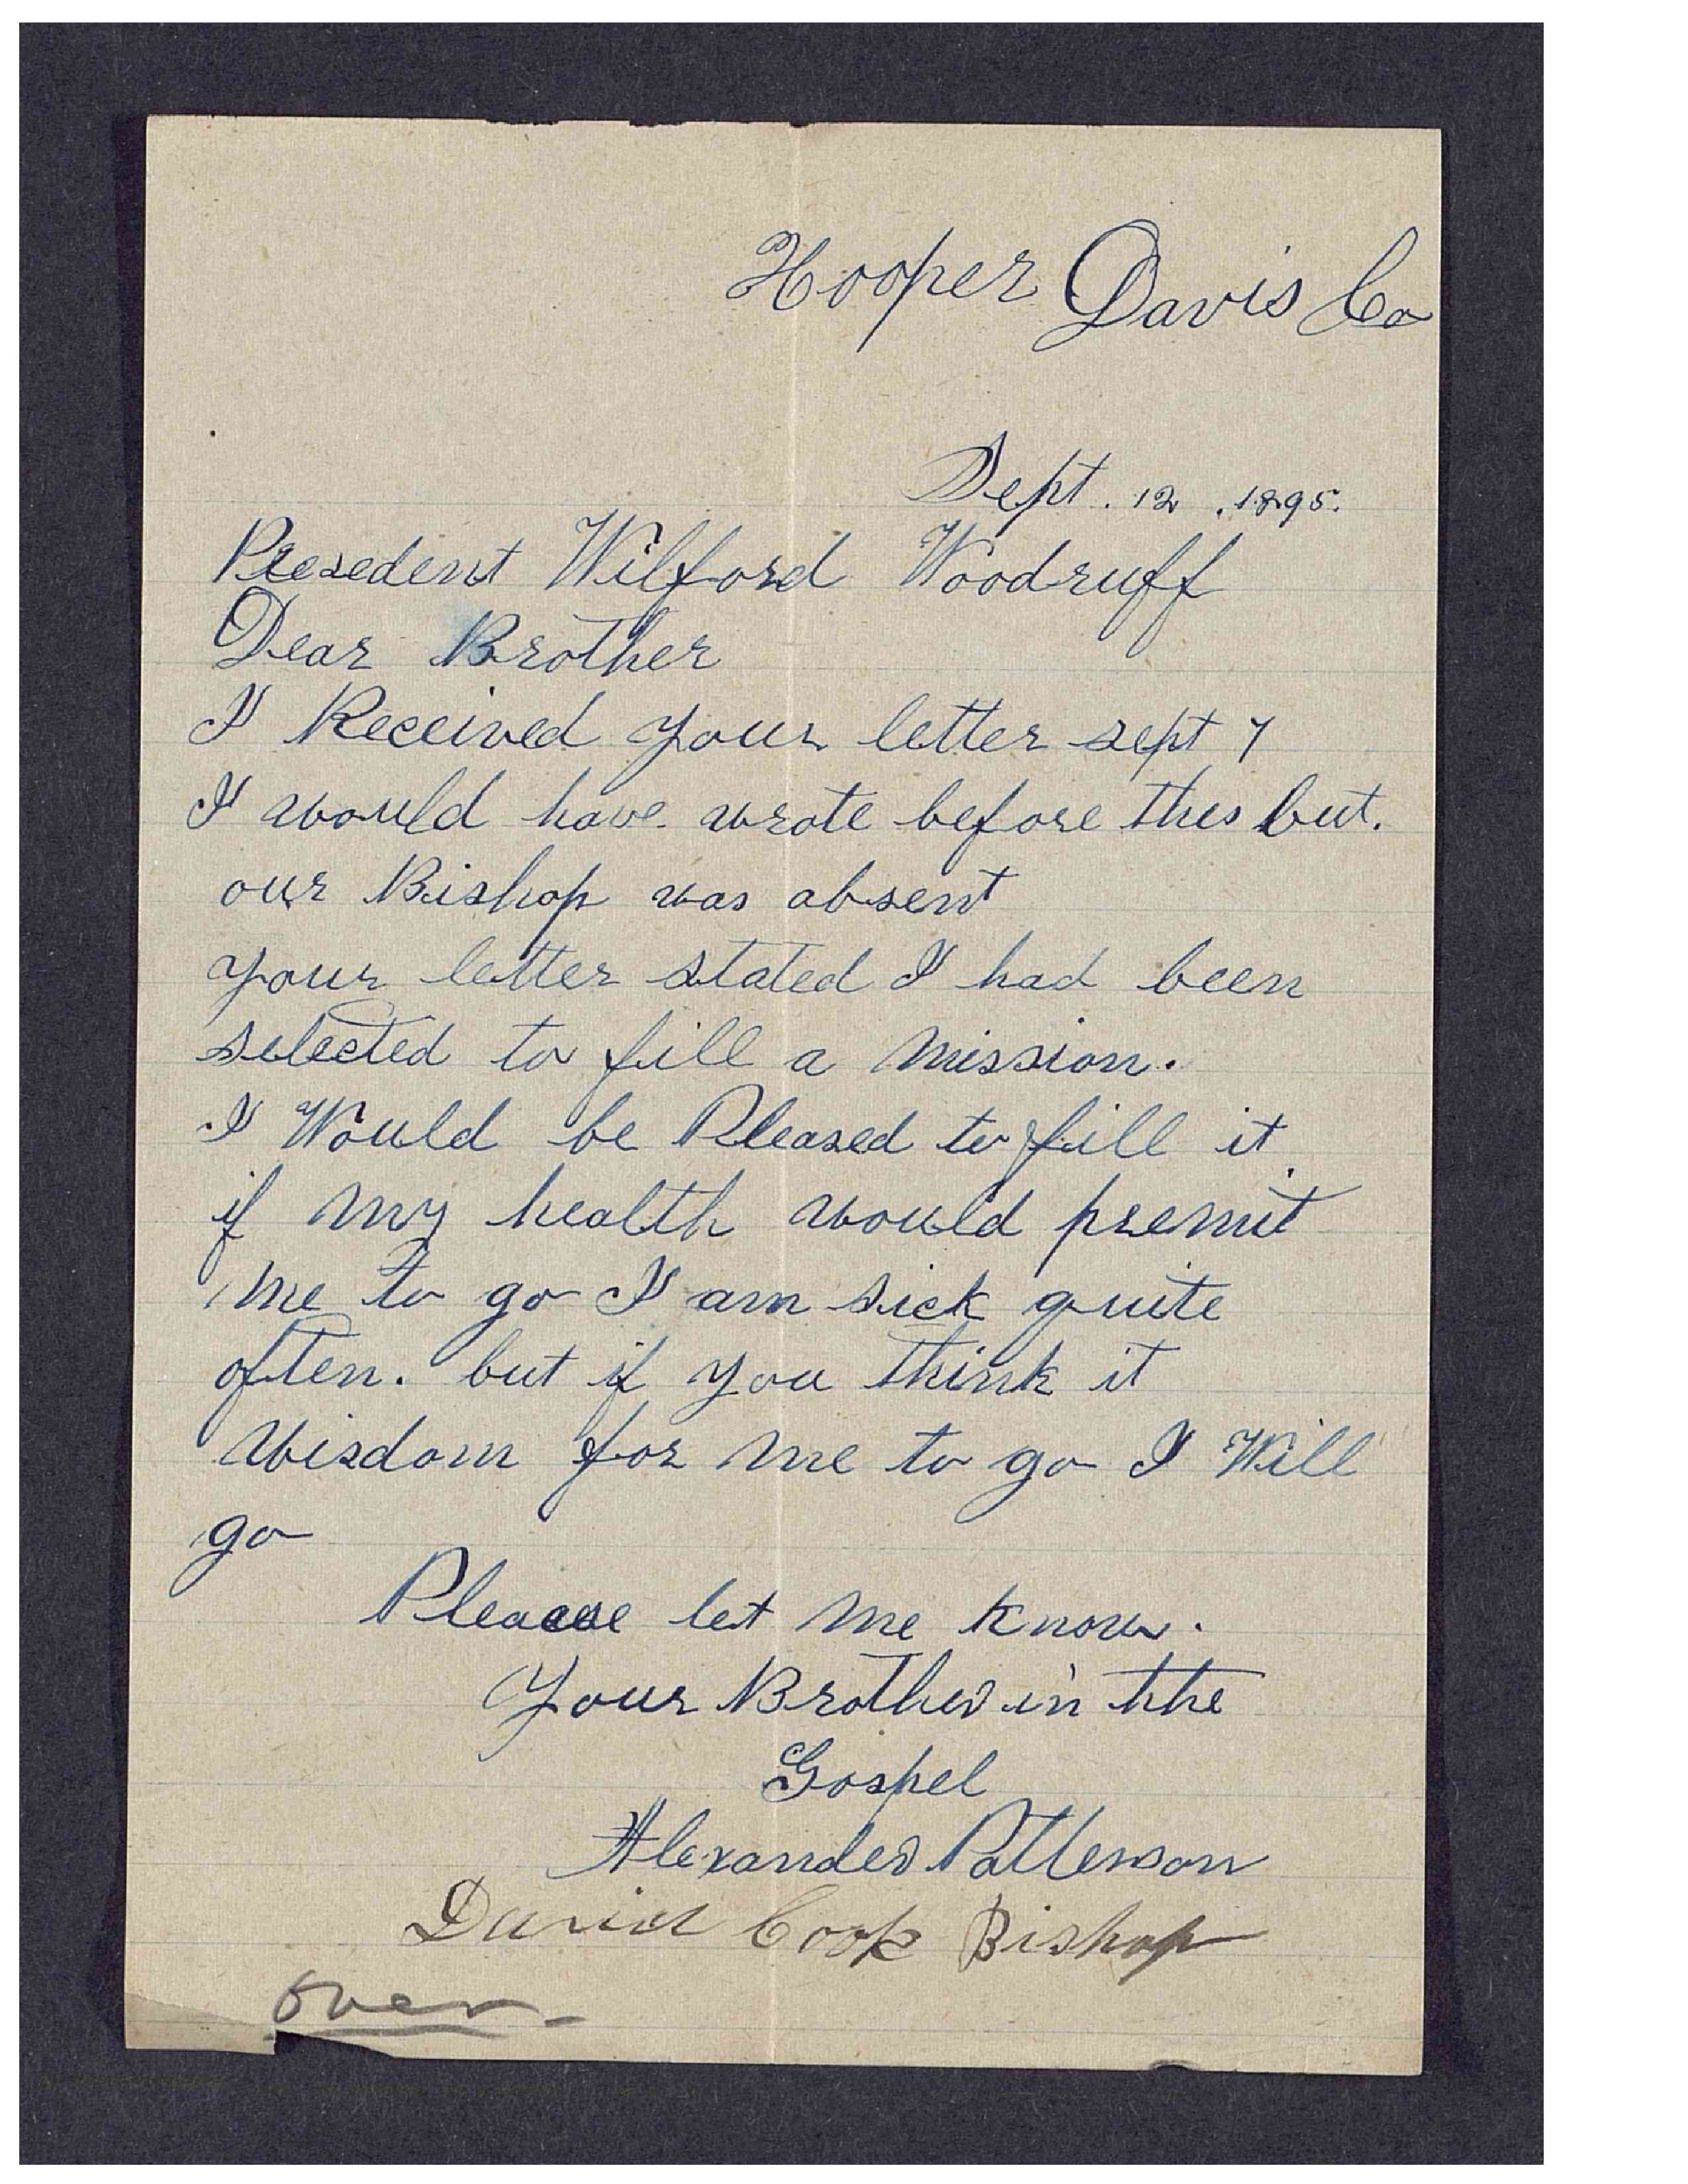 Hooper Davis Co
Sept. 12, 1895.
Presedent Wilford Woodruff
Dear Brother
I Received your letter sept 7
I would have wrote before this but.
our Bishop was absent
your letter stated I had been
selected to fill a mission.
I Would be Pleased to fill it
if my health would premit
me to go I am sick quite
often. but if you think it
wisdom for me to go I Will
go
Please let me know.
Your Brother in the
Gospel
Alexander Patterson
David Cook Bishop
over.